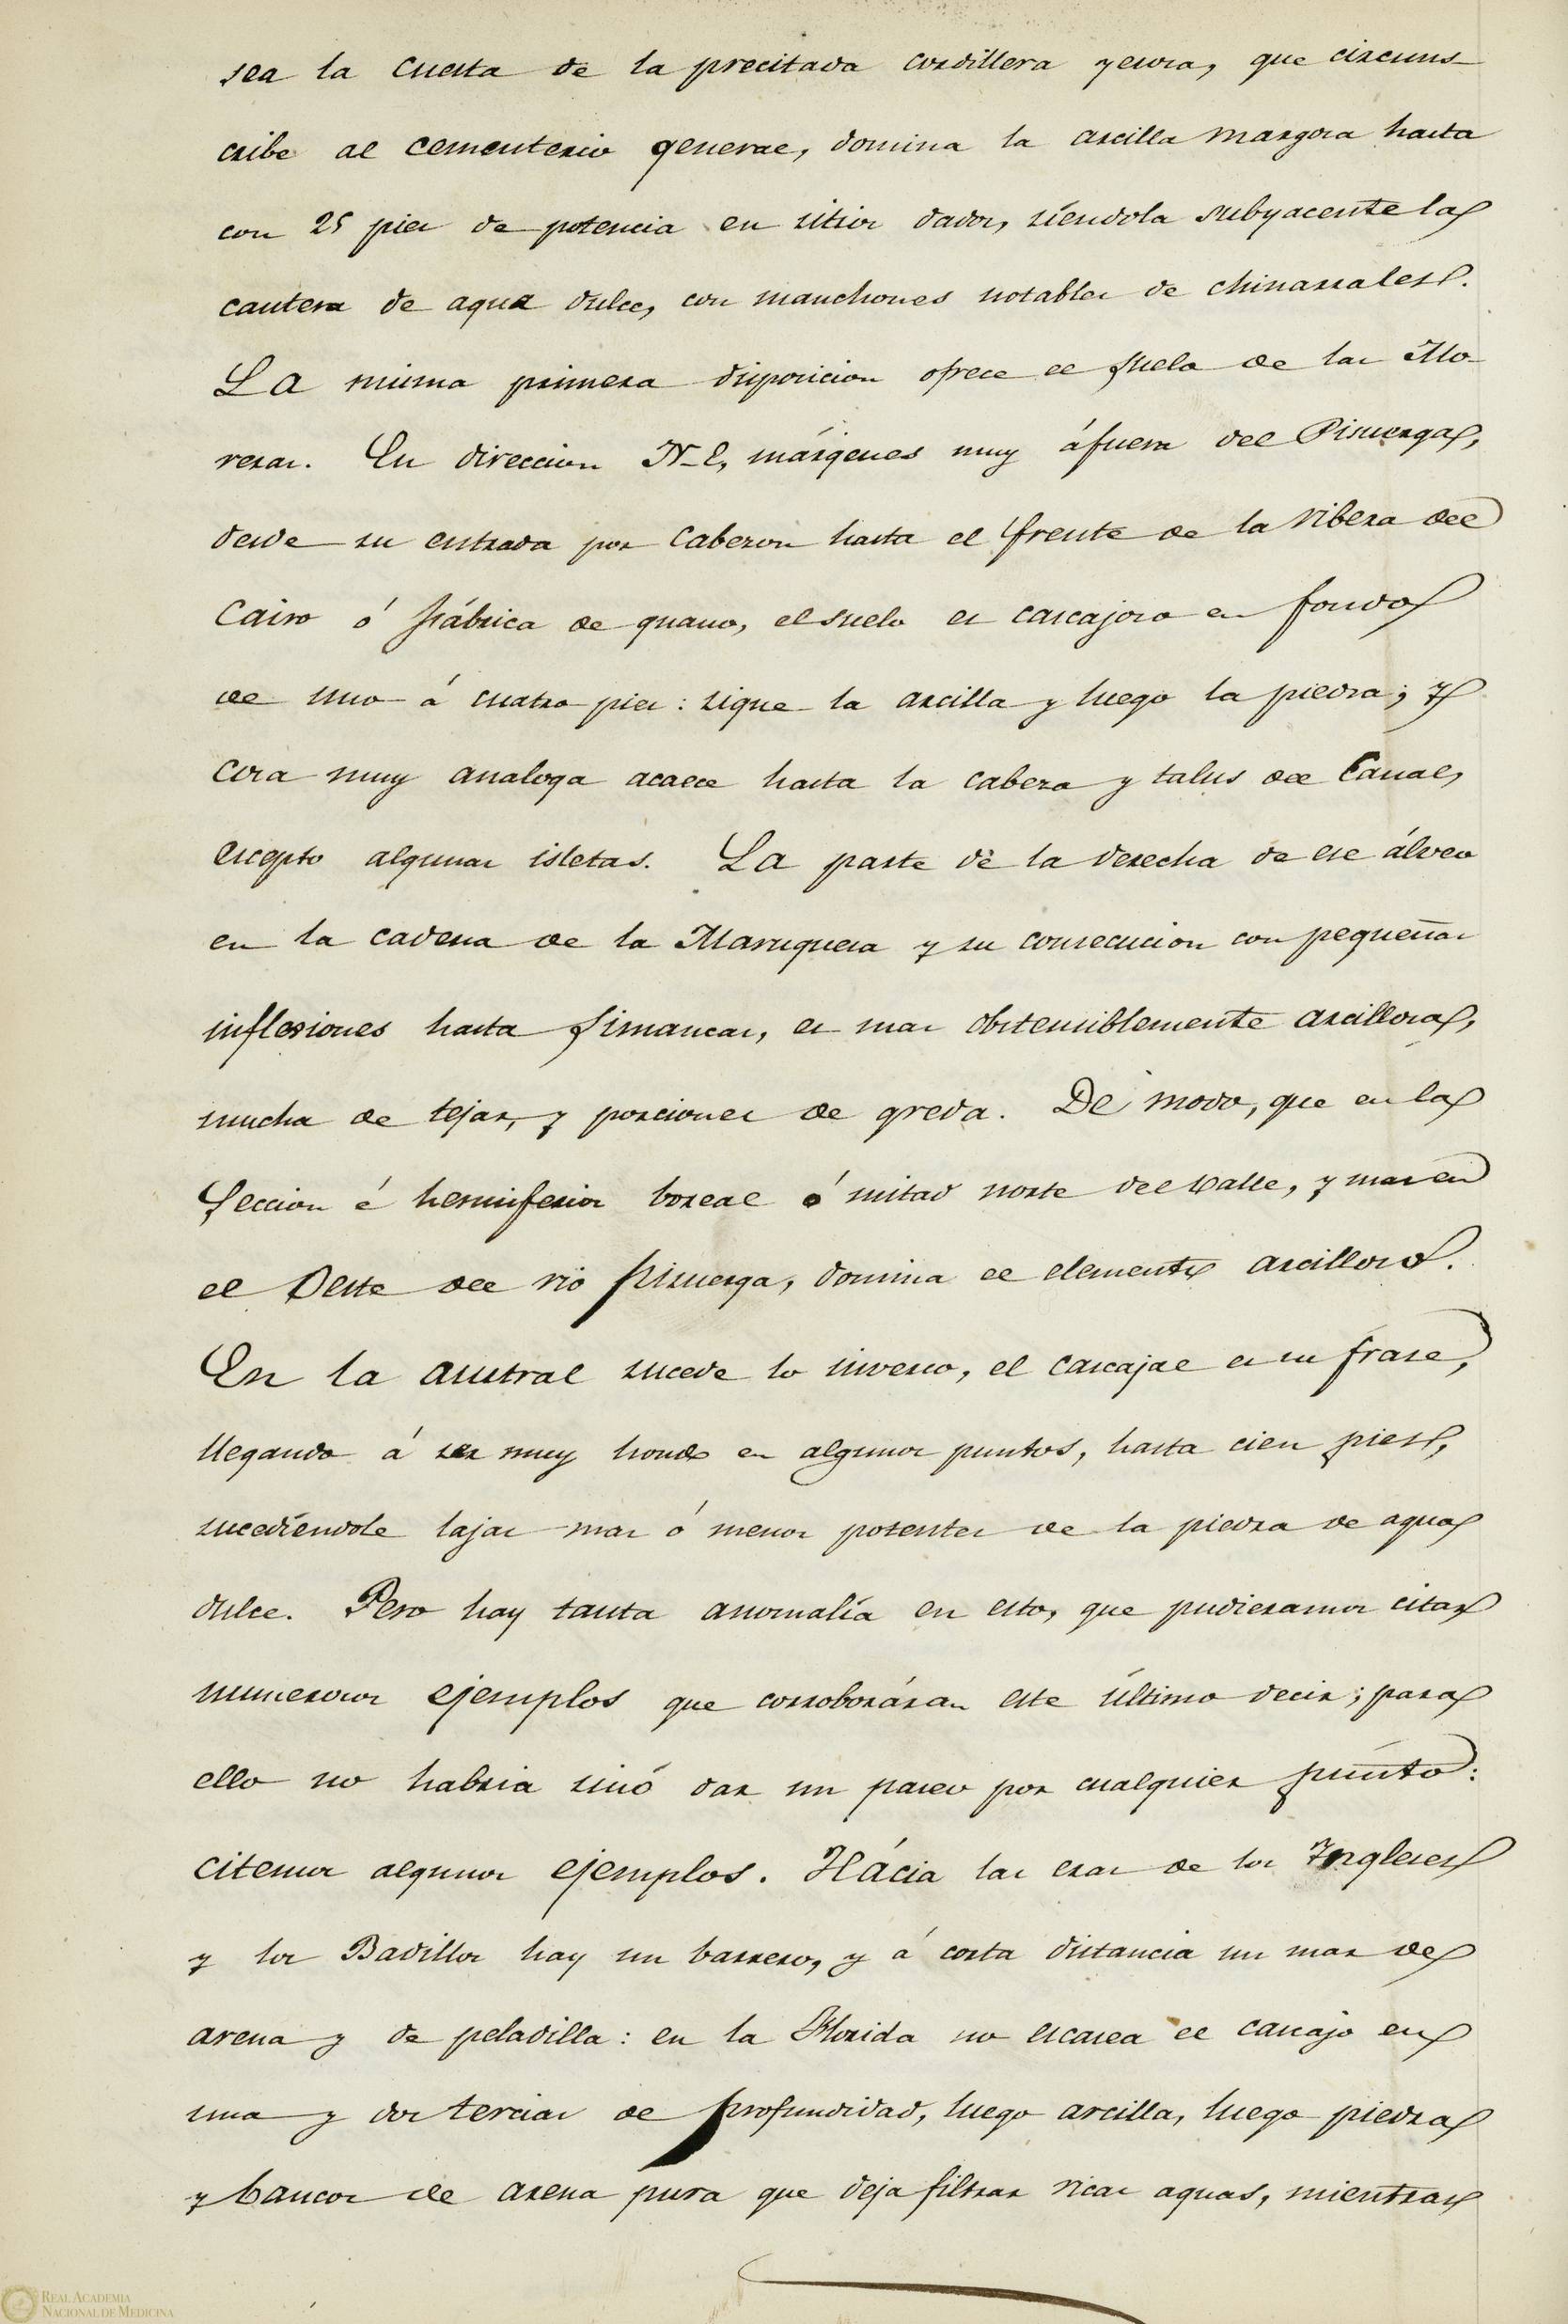 sea la cuesta de la precitada cordillera yesosa, que circuns-
cribe al cementerio general, domina la arcilla margosa hasta
con 25 pies de potencia en sitios dados, siéndola subyacente la
cantera de agua dulce, con manchones notables de chinarrales.
La misma primera disposicion ofrece el suelo de las Mo-
reras. En direccion N-E, márgenes muy áfuera del Pisuerga,
desde su entrada por Cabezon hasta el frente de la ribera del
Cairo ó fábrica de guano, el suelo es cascajoso en fondo
de uno á cuatro pies: sigue la arcilla y luego la piedra; y
cosa muy analoga acaece hasta la cabeza y talus del Canal,
escepto algunas isletas. La parte de la derecha de ese álveo
en la cadena de la Maruquesa y su consecucion con pequeñas
inflexiones hasta Simancas, es mas obstensiblemente arcillosa,
mucha de tejar, y porciones de greda. De modo, que en la
Seccion é hemisferior boreal ó mitad norte del valle, y mas en
el Oeste del rio Pisuerga, domina el elemento arcilloso.
En la austral sucede lo inverso, el cascajal es su frase,
llegando á ser muy hondo en algunos puntos, hasta cien pies,
sucediéndole lajas mas ó menos potentes de la piedra de agua
dulce. Pero hay tanta anomalía en esto, que pudieramos citar
numerosos ejemplos que corroboráran este último decir; para
ello no habria sinó dar un paseo por cualquier punto:
citemos algunos ejemplos. Hácia las eras de los Ingleses
y los Badillos hay un barrero, y á corta distancia un mar de
arena y de peladilla: en la Florida no escasea el cascajo en
una y dos tercias de profundidad, luego arcilla, luego piedra
y bancos de arena pura que deja filtrar ricas aguas, mientras
REAL ACADEMIA
NACIONAL DE MEDICINA